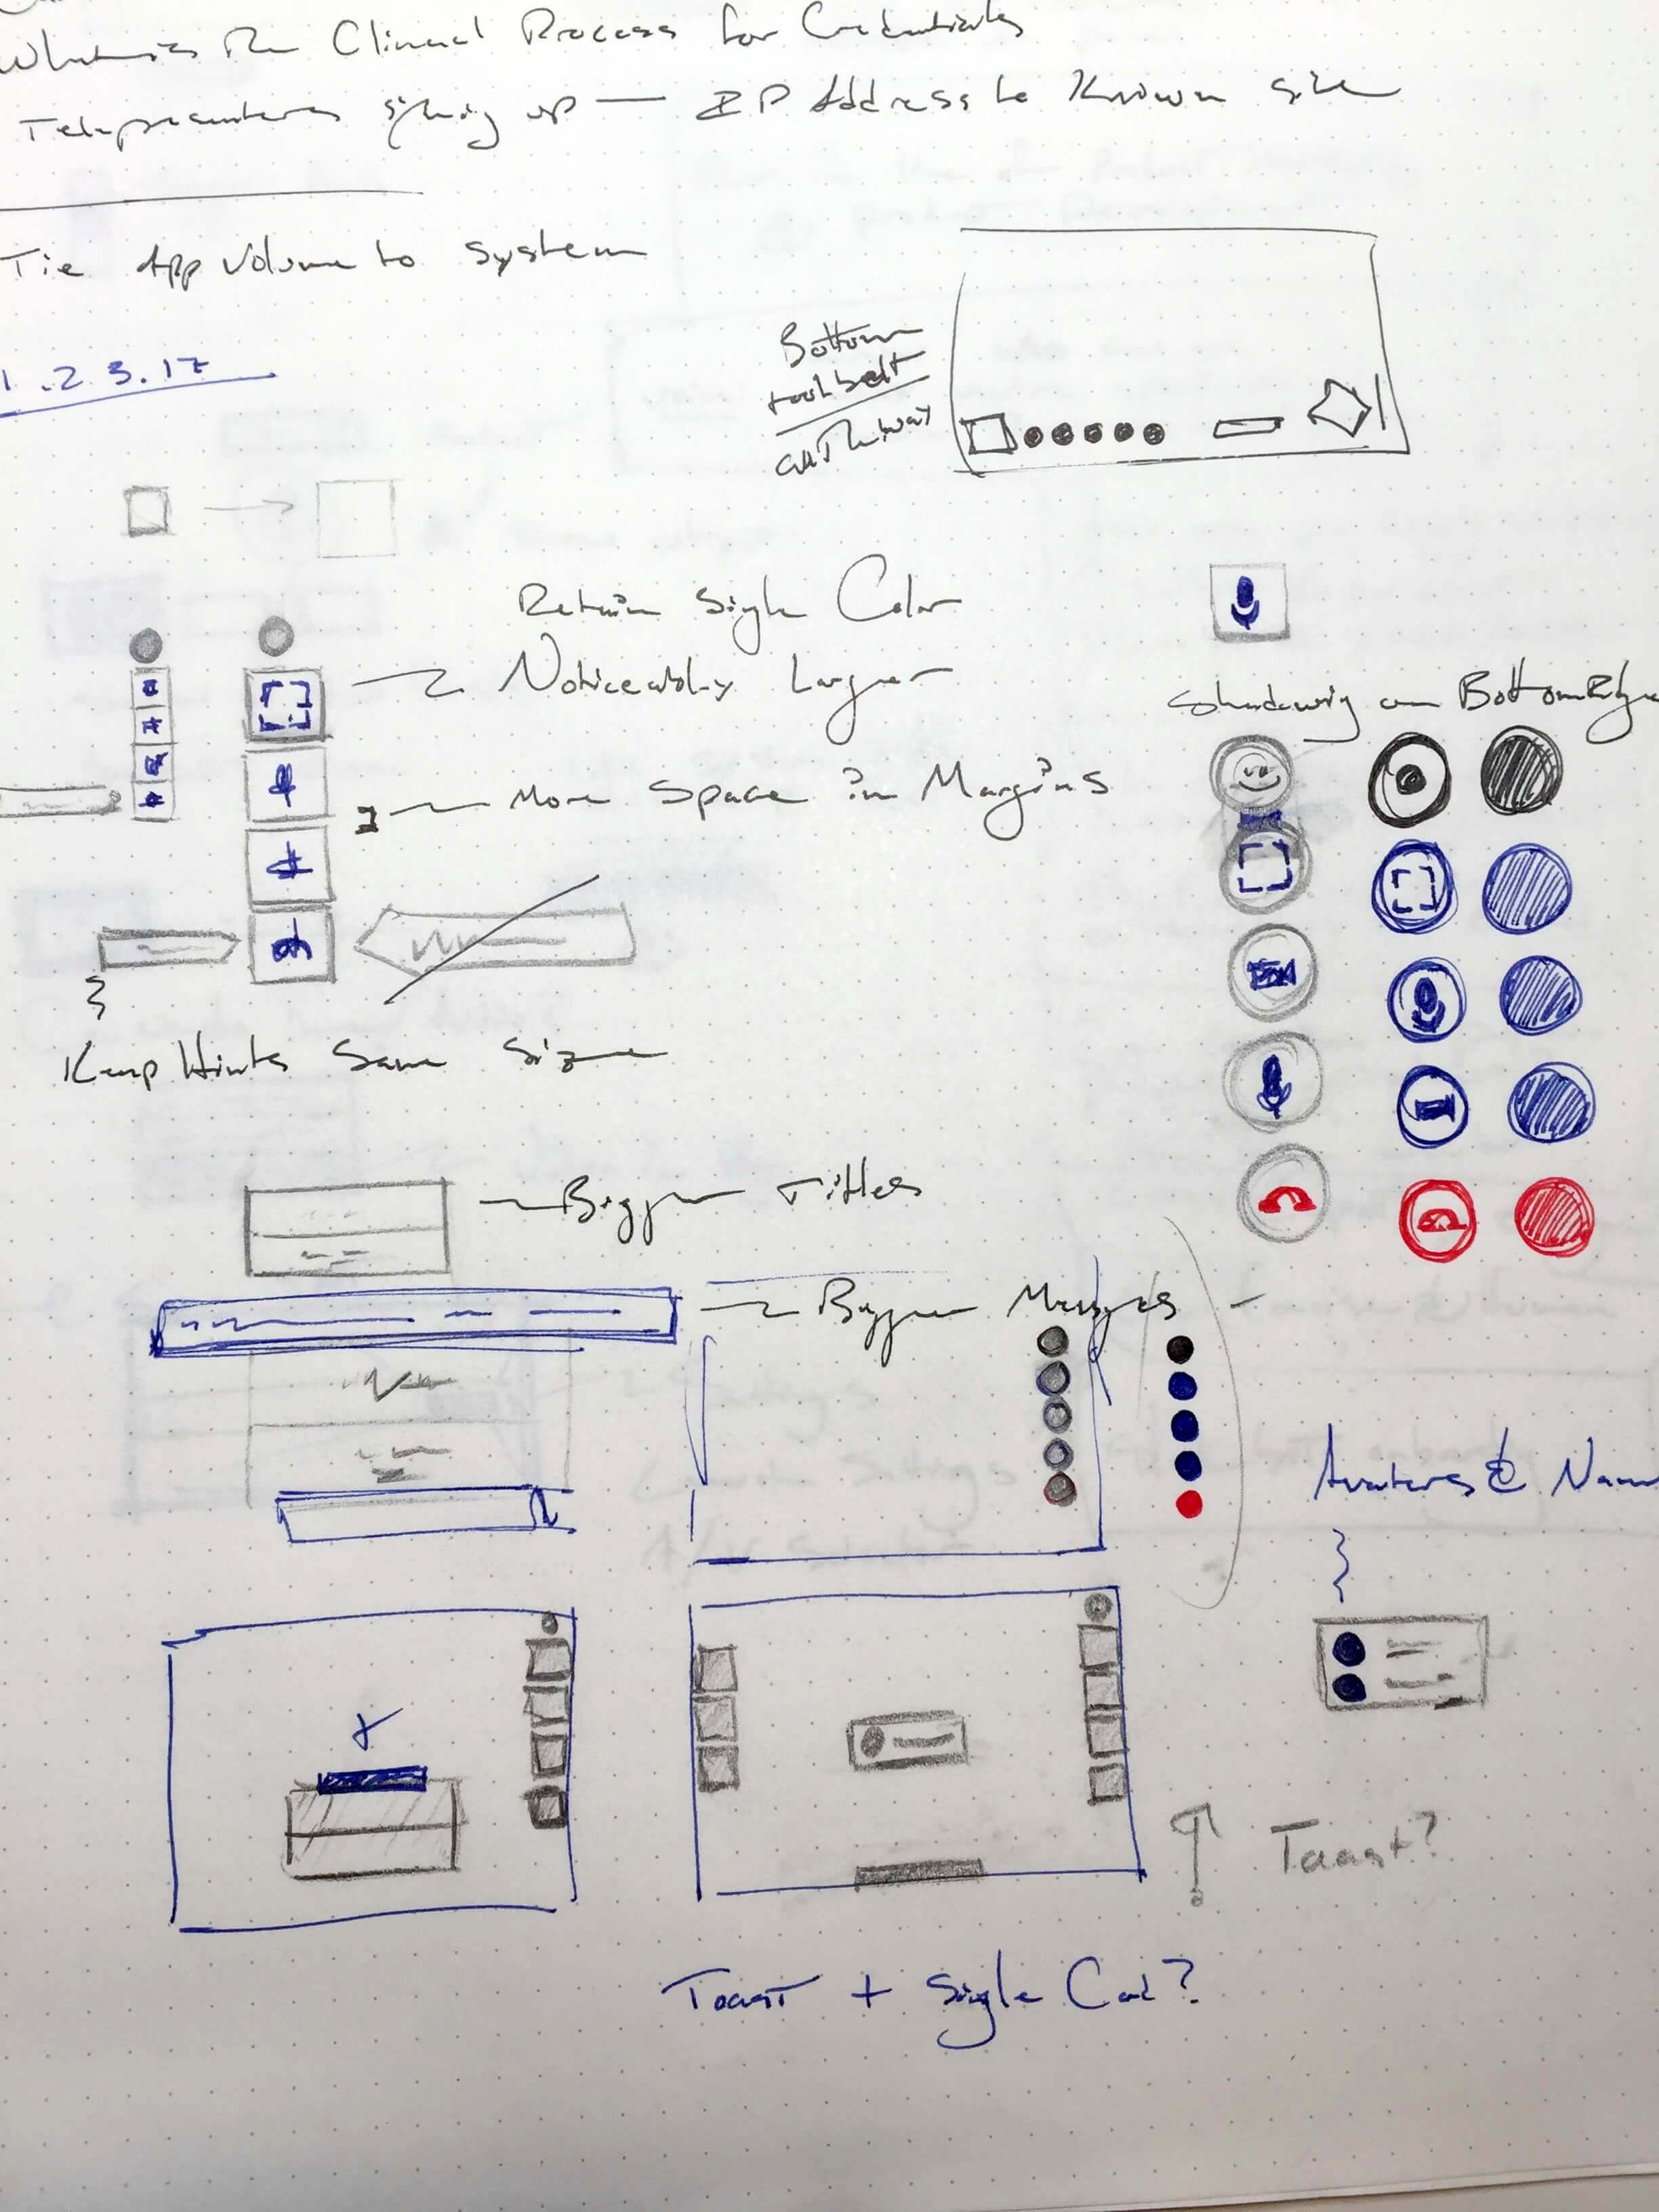 What is The Clinical Process for Credentials
Telepresenters signing up — IP Address to Known site
Tie App Volume to System
Bottom
toolbelt
all The way
1.23.17
Retain Single Color
Noticeably Larger
Shadowing on Bottom Edge
More Space in Margins
Keep Hints Same Size
Bigger Titles
Bigger Messages
Avatars & Name
Toast?
Toast + Single Card?